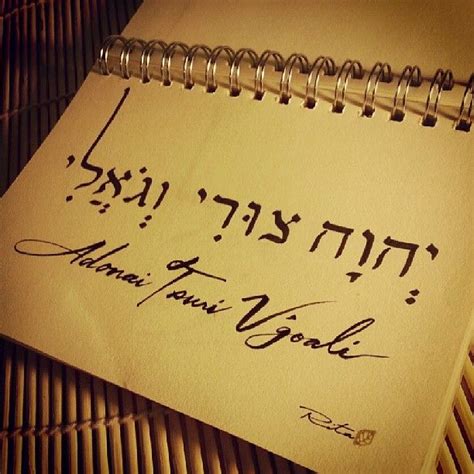 יְהוָה צוּרִי וְגֹאֲלִי
Adonai Tsuri V'goali
Rita